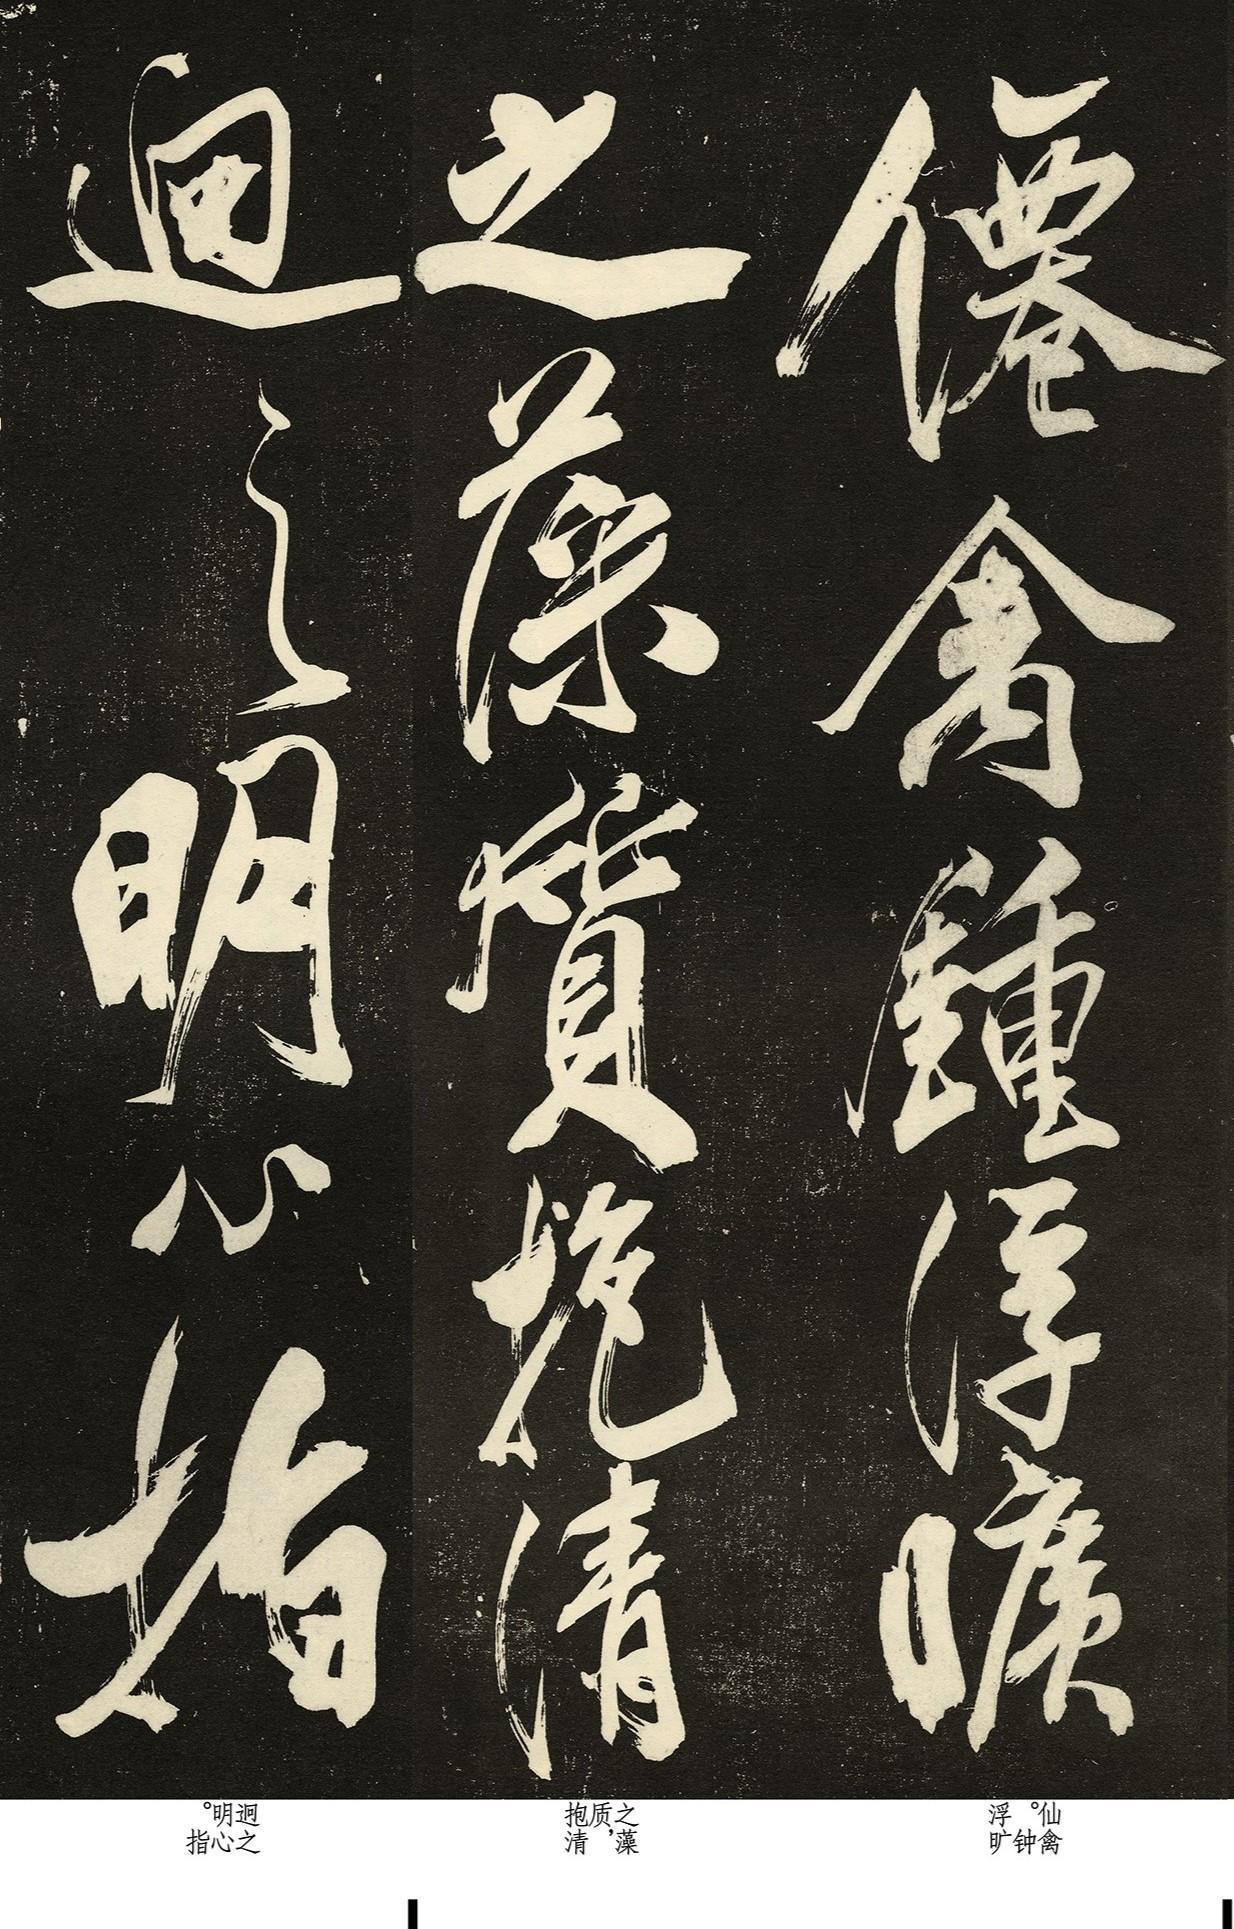 僊禽鍾浮曠
之藻質抱清
逈之明心指
仙禽
。钟
浮旷
之藻
质，
抱清
迥之
明心
。指